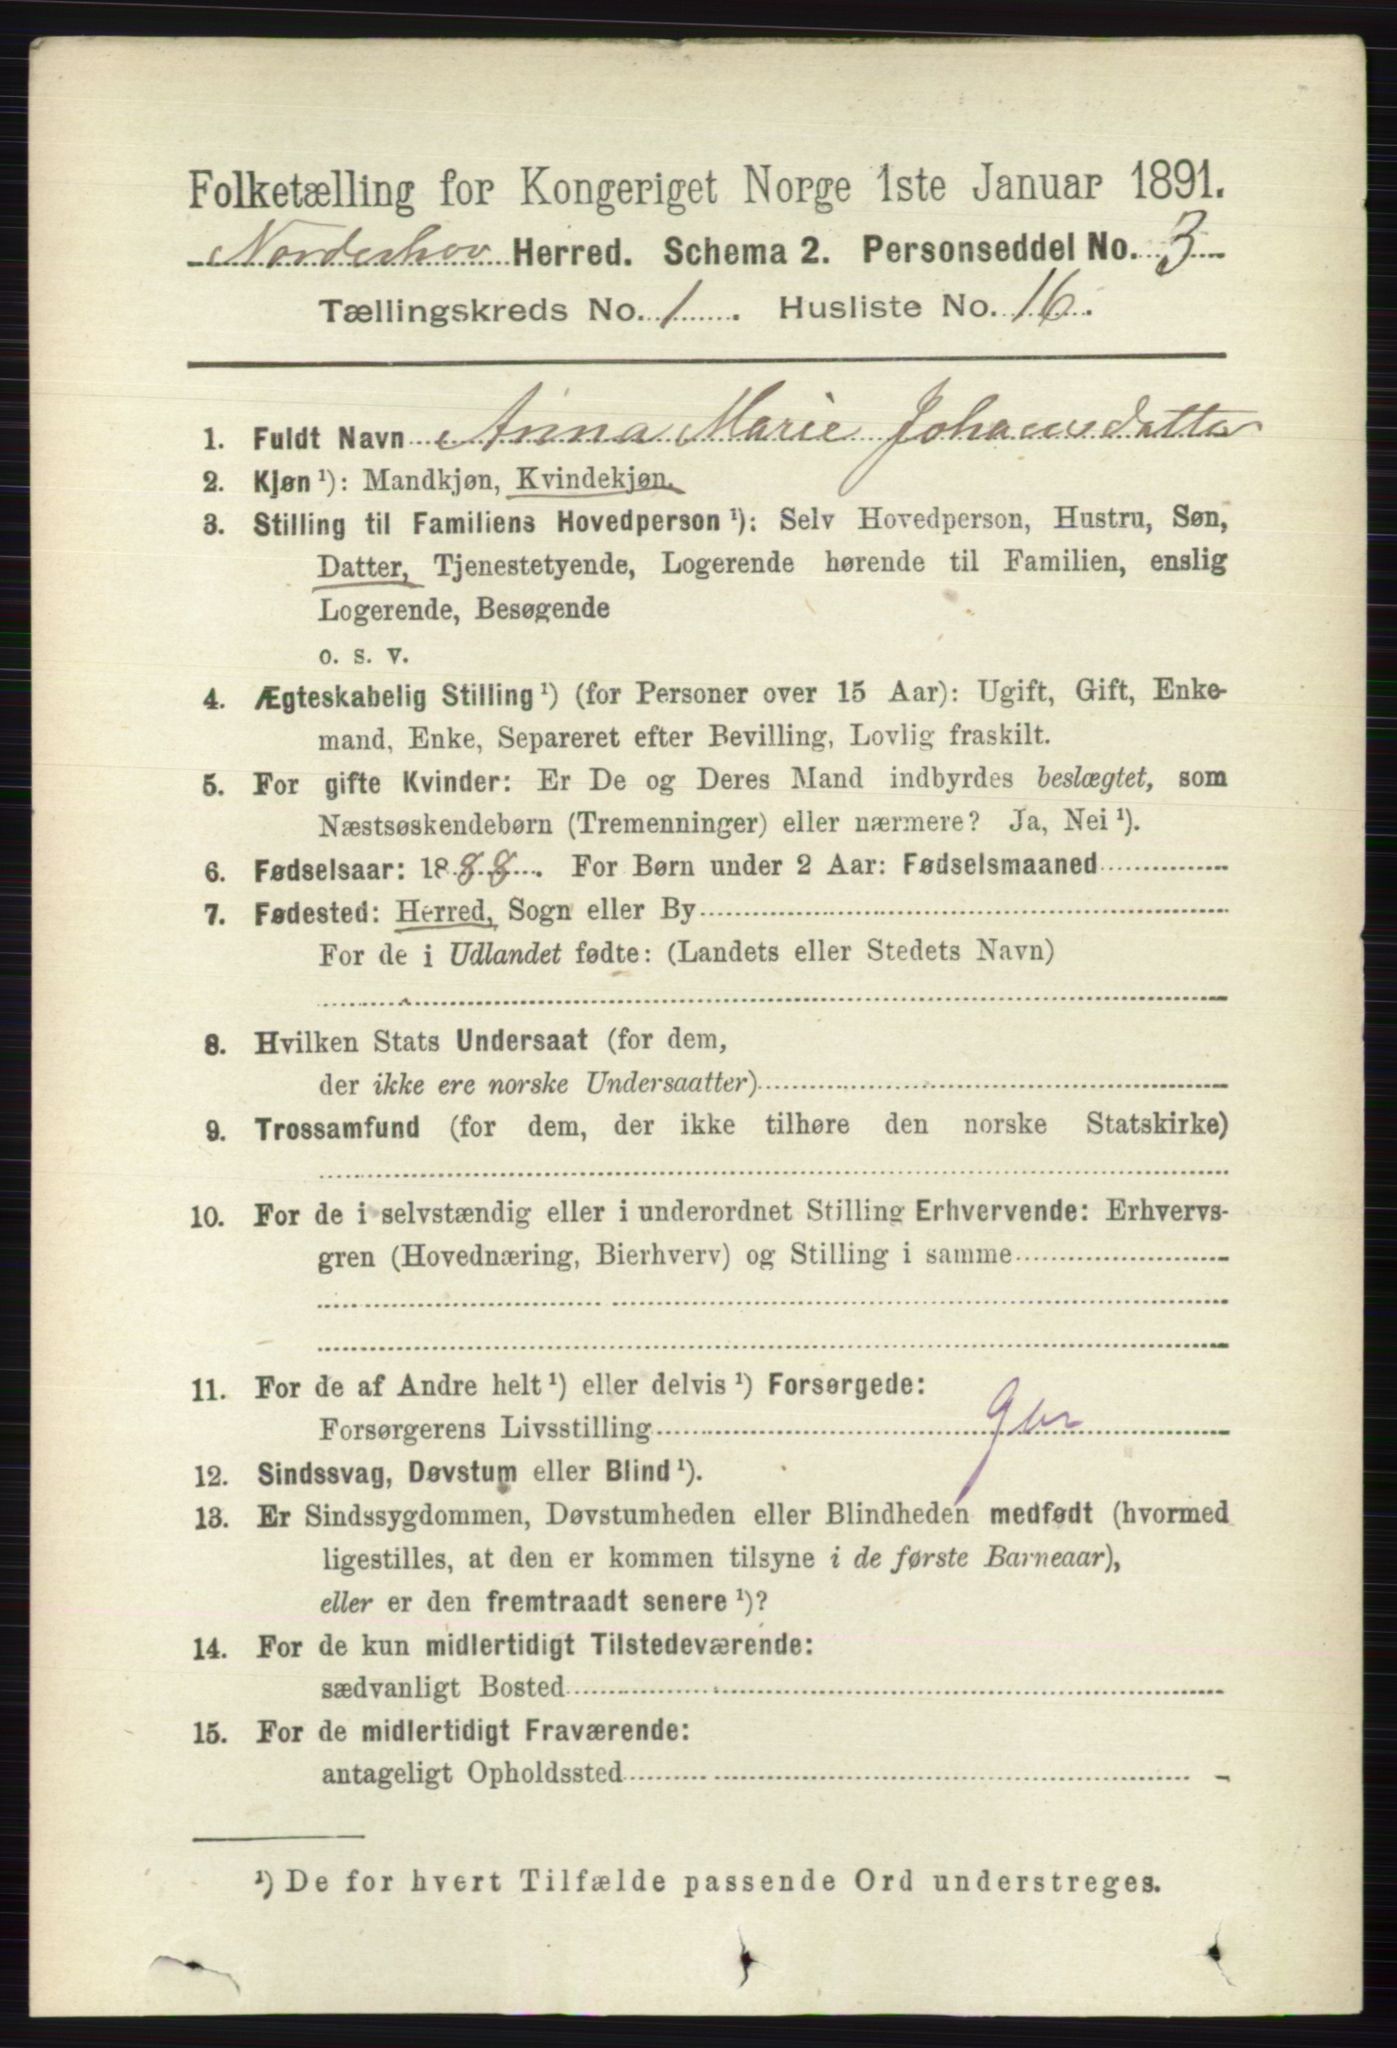 Folketælling for Kongeriget Norge 1ste Januar 1891.
Norderhov Herred. Schema 2. Personseddel No. 3
Tællingskreds No. 1. Husliste No. 16.
1. Fuldt Navn Anna Marie Johansdatter
2. Kjøn ¹): Mandkjøn, Kvindekjøn.
3. Stilling til Familiens Hovedperson ¹): Selv Hovedperson, Hustru, Søn,
Datter, Tjenestetyende, Logerende hørende til Familien, enslig
Logerende, Besøgende
o. s. v.
4. Ægteskabelig Stilling ¹) (for Personer over 15 Aar): Ugift, Gift, Enke-
mand, Enke, Separeret efter Bevilling, Lovlig fraskilt.
5. For gifte Kvinder: Er De og Deres Mand indbyrdes beslægtet, som
Næstsøskendebørn (Tremenninger) eller nærmere? Ja, Nei ¹).
6. Fødselsaar: 1888. For Børn under 2 Aar: Fødselsmaaned
7. Fødested: Herred, Sogn eller By
For de i Udlandet fødte: (Landets eller Stedets Navn)
8. Hvilken Stats Undersaat (for dem,
der ikke ere norske Undersaatter)
9. Trossamfund (for dem, der ikke tilhøre den norske Statskirke)
10. For de i selvstændig eller i underordnet Stilling Erhvervende: Erhvervs-
gren (Hovednæring, Bierhverv) og Stilling i samme
11. For de af Andre helt ¹) eller delvis ¹) Forsørgede:
Forsørgerens Livsstilling
12. Sindssvag, Døvstum eller Blind ¹).
13. Er Sindssygdommen, Døvstumheden eller Blindheden medfødt (hvormed
ligestilles, at den er kommen tilsyne i de første Barneaar),
eller er den fremtraadt senere ¹)?
14. For de kun midlertidigt Tilstedeværende:
sædvanligt Bosted
15. For de midlertidigt Fraværende:
antageligt Opholdssted
¹) De for hvert Tilfælde passende Ord understreges.